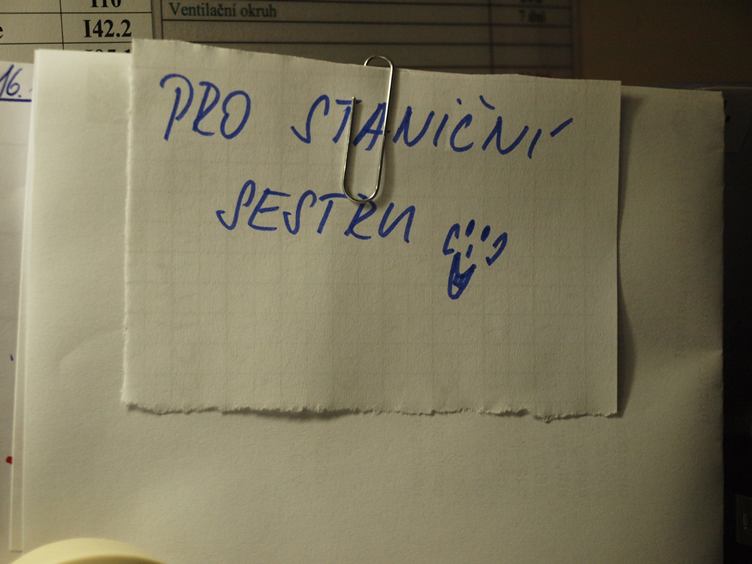 I10
Ventilační okruh
7 dní
I42.2
16.
PRO STANIČNÍ
SESTRU